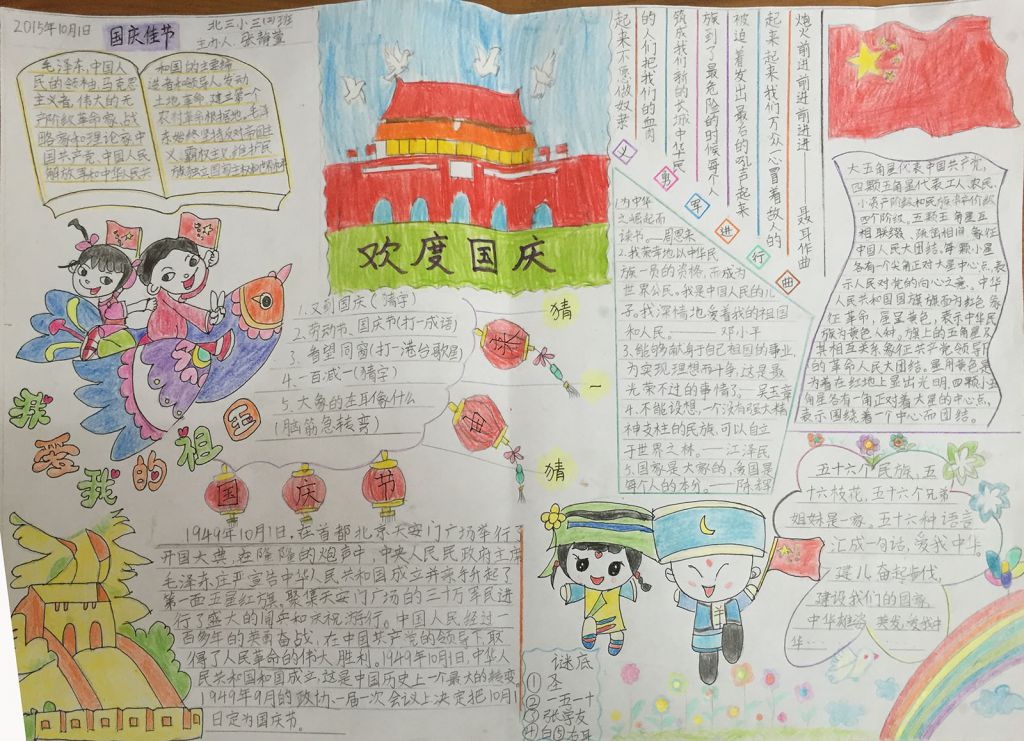 2015年10月1日
国庆佳节
北三小三(四)班
主办人:张静萱
毛泽东,中国人
民的领袖,马克思
主义者,伟大的无
产阶级革命家、战
略家和理论家,中
国共产党、中国人民
解放军和中华人民共
和国的主要缔
造者和领导人,发动
土地革命,建立第一个
农村革命根据地。毛泽
东始终坚持反对帝国主
义、霸权主义,维护民
族独立国家主权
欢度国庆
炮火前进前进前进进——聂耳作曲
起来起来我们万众一心冒着敌人的
被迫着发出最后的吼声起来
族到了最危险的时候每个人
筑成我们新的长城中华民
的人们把我们的血肉
起来不愿做奴隶
义勇军进行曲
1.为中华
之崛起而
读书。——周恩来
2.我荣幸地以中华民
族一员的资格,而成为
世界公民。我是中国人民的儿
子。我深情地爱着我的祖国
和人民。——邓小平
3.能够献身于自己祖国的事业,
为实现理想而斗争,这是最
光荣不过的事情了。——吴玉章
4.不能设想,一个没有强大精
神支柱的民族,可以自立
于世界之林。——江泽民
5.国家是大家的,爱国是
每个人的本分。——陈辉
大五角星代表中国共产党,
四颗五角星代表工人、农民、
小资产阶级和民族资产阶级
四个阶级。五颗五角星互
相联缀、疏密相间,象征
中国人民大团结。每颗小星
各有一个尖角正对大星中心点,表
示人民对党的向心之意。中华
人民共和国国旗旗面为红色,象
征革命,星呈黄色,表示中华民
族为黄色人种。旗上的五角星及
其相互关系象征共产党领导下
的革命人民大团结。星用黄色是
为着在红地上显出光明,四颗小五
角星各有一角正对着大星的中心点,
表示围绕着一个中心而团结。
1.又到国庆(猜字)
2.劳动节、国庆节(打一成语)
3.希望同窗(打一港台歌星)
4.一百减一(猜字)
5.大象的左耳像什么
(脑筋急转弯)
猜
一
猜
我爱我的祖国
国庆节
1949年10月1日,在首都北京天安门广场举行了
开国大典,在隆隆的炮声中,中央人民政府主席
毛泽东庄严宣告中华人民共和国成立并亲手升起了
第一面五星红旗。聚集天安门广场的三十万军民进
行了盛大的阅兵和庆祝游行。中国人民经过一
百多年的英勇奋战,在中国共产党的领导下,取
得了人民革命的伟大胜利。1949年10月1日,中华人
民共和国和国成立,这是中国历史上一个最大的转变。
1949年9月的政协一届一次会议上决定把10月1
日定为国庆节。
五十六个民族,五
十六枝花,五十六个兄弟
姐妹是一家。五十六种语言
汇成一句话,爱我中华,
健儿奋起步伐,
建设我们的国家,
爱我中
华……
谜底
①圣
②一五一十
③张学友
④白⑤右耳